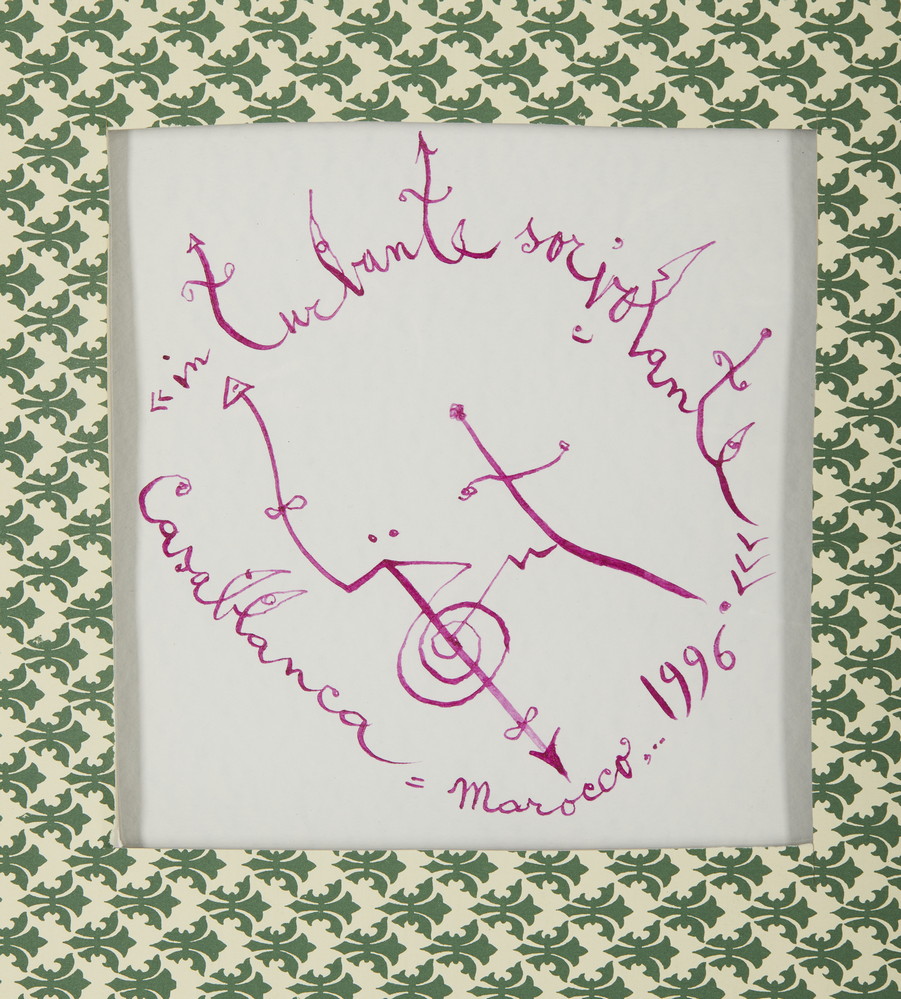 «in turbante sorjvolante»
Casablanca = Marocco... 1996.